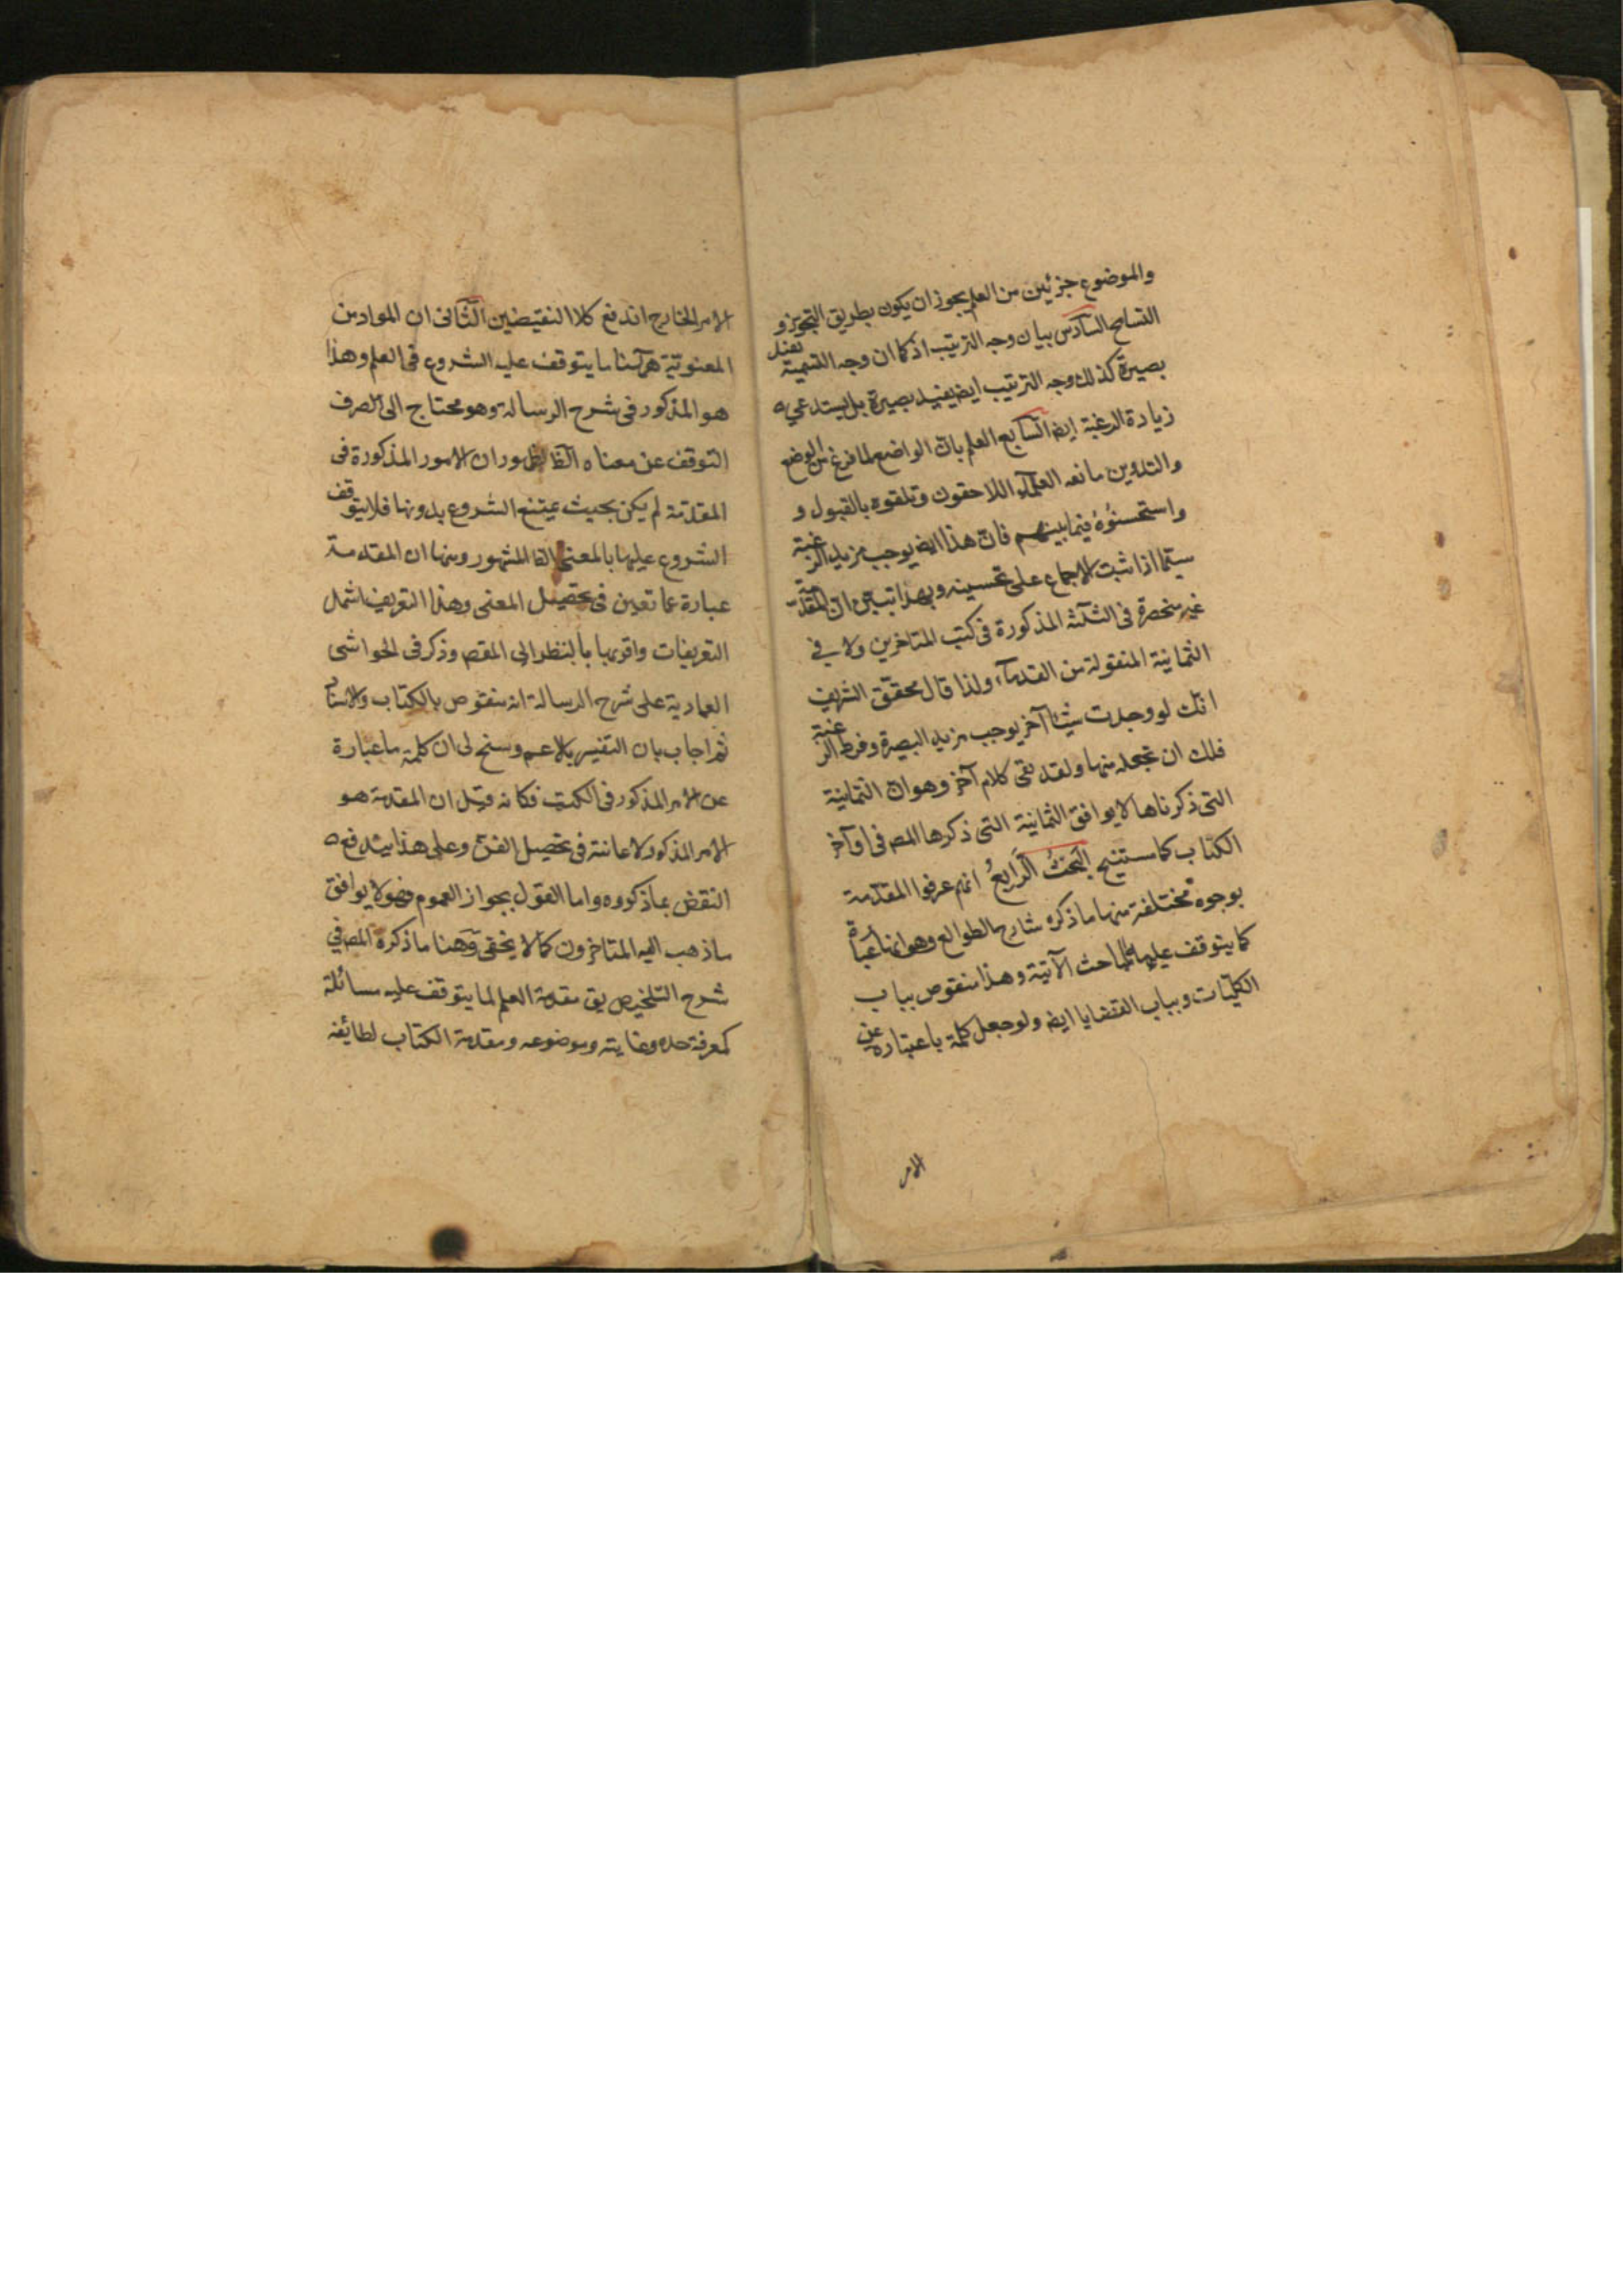 والموضوع جزئين من العلم يجوز ان يكون بطريق التجوز و
التسامح السادس بيان وجه الترتيب اذ كما ان وجه التسمية تفيد
بصيرة كذلك وجه الترتيب ايض يفيد بصيرة بل يستدعى
زيادة الرغبة ايض السابع العلم بان الواضع لما فرغ من الوضع
والتدوين ما نعه العلماء اللاحقون وتلقوه بالقبول و
واستحسنوه فيما بينهم فان هذا ايض يوجب مزيد الرغبة
سيما اذا ثبت الاجماع على تحسينه وبهذا تبين ان المقدمة
غير منحصرة فى الثلثة المذكورة فى كتب المتاخرين ولا في
الثمانية المنقولة من القدماء ولذا قال محقق الشريف
انك لو وجدت شيئا آخر يوجب مزيد البصيرة وفرط الرغبة
فلك ان تجعله منها ولقد بقى كلام آخر وهو ان الثمانية
التى ذكرناها لا يوافق الثمانية التى ذكرها المص فى اوآخر
الكتاب كما ستنيح البحث الرابع انهم عرفوا المقدمة
بوجوه مختلفة منها ما ذكره شارح الطوالع وهو انها عبارة
كما يتوقف عليها المباحث الآتية وهذا منقوص بباب
الكليات وبباب القضايا ايض ولو جعل كلمة ما عبارة عن
الامر
الامر الخارج اندفع كلا النقيضين الثانى ان المراد من
المعنوية ههنا ما يتوقف عليه الشروع فى العلم وهذا
هو المذكور فى شرح الرسالة وهو محتاج الى الصرف
التوقف عن معناه الظ لظهور ان الامور المذكورة فى
المقدمة لم يكن بحيث يمتنع الشروع بدونها فلا يتوقف
الشروع عليها بالمعنى المشهور ومنها ان المقدمة
عبارة عما تعين فى تحصيل المعنى وهذا التعريف اشمل
التعريفات واقربها بالنظر الى المقص وذكر فى الحواشى
العمادية على شرح الرسالة انه منقوص بالكتاب والاستاد
ثم اجاب بان التفسير بالاعم وسنح لى ان كلمة ما عبارة
عن الامر المذكور فى الكتب فكانه قيل ان المقدمة هو
الامر المذكور لاعانته فى تحصيل الفن وعلى هذا يندفع
النقض بما ذكروه واما القول بجواز العموم فهو لا يوافق
ما ذهب اليه المتاخرون كما لا يخفى وههنا ما ذكره المص في
شرح التلخيص يق مقدمة العلم لما يتوقف عليه مسائله
كمعرفة حده وغايته وموضوعه ومقدمة الكتاب لطائفه